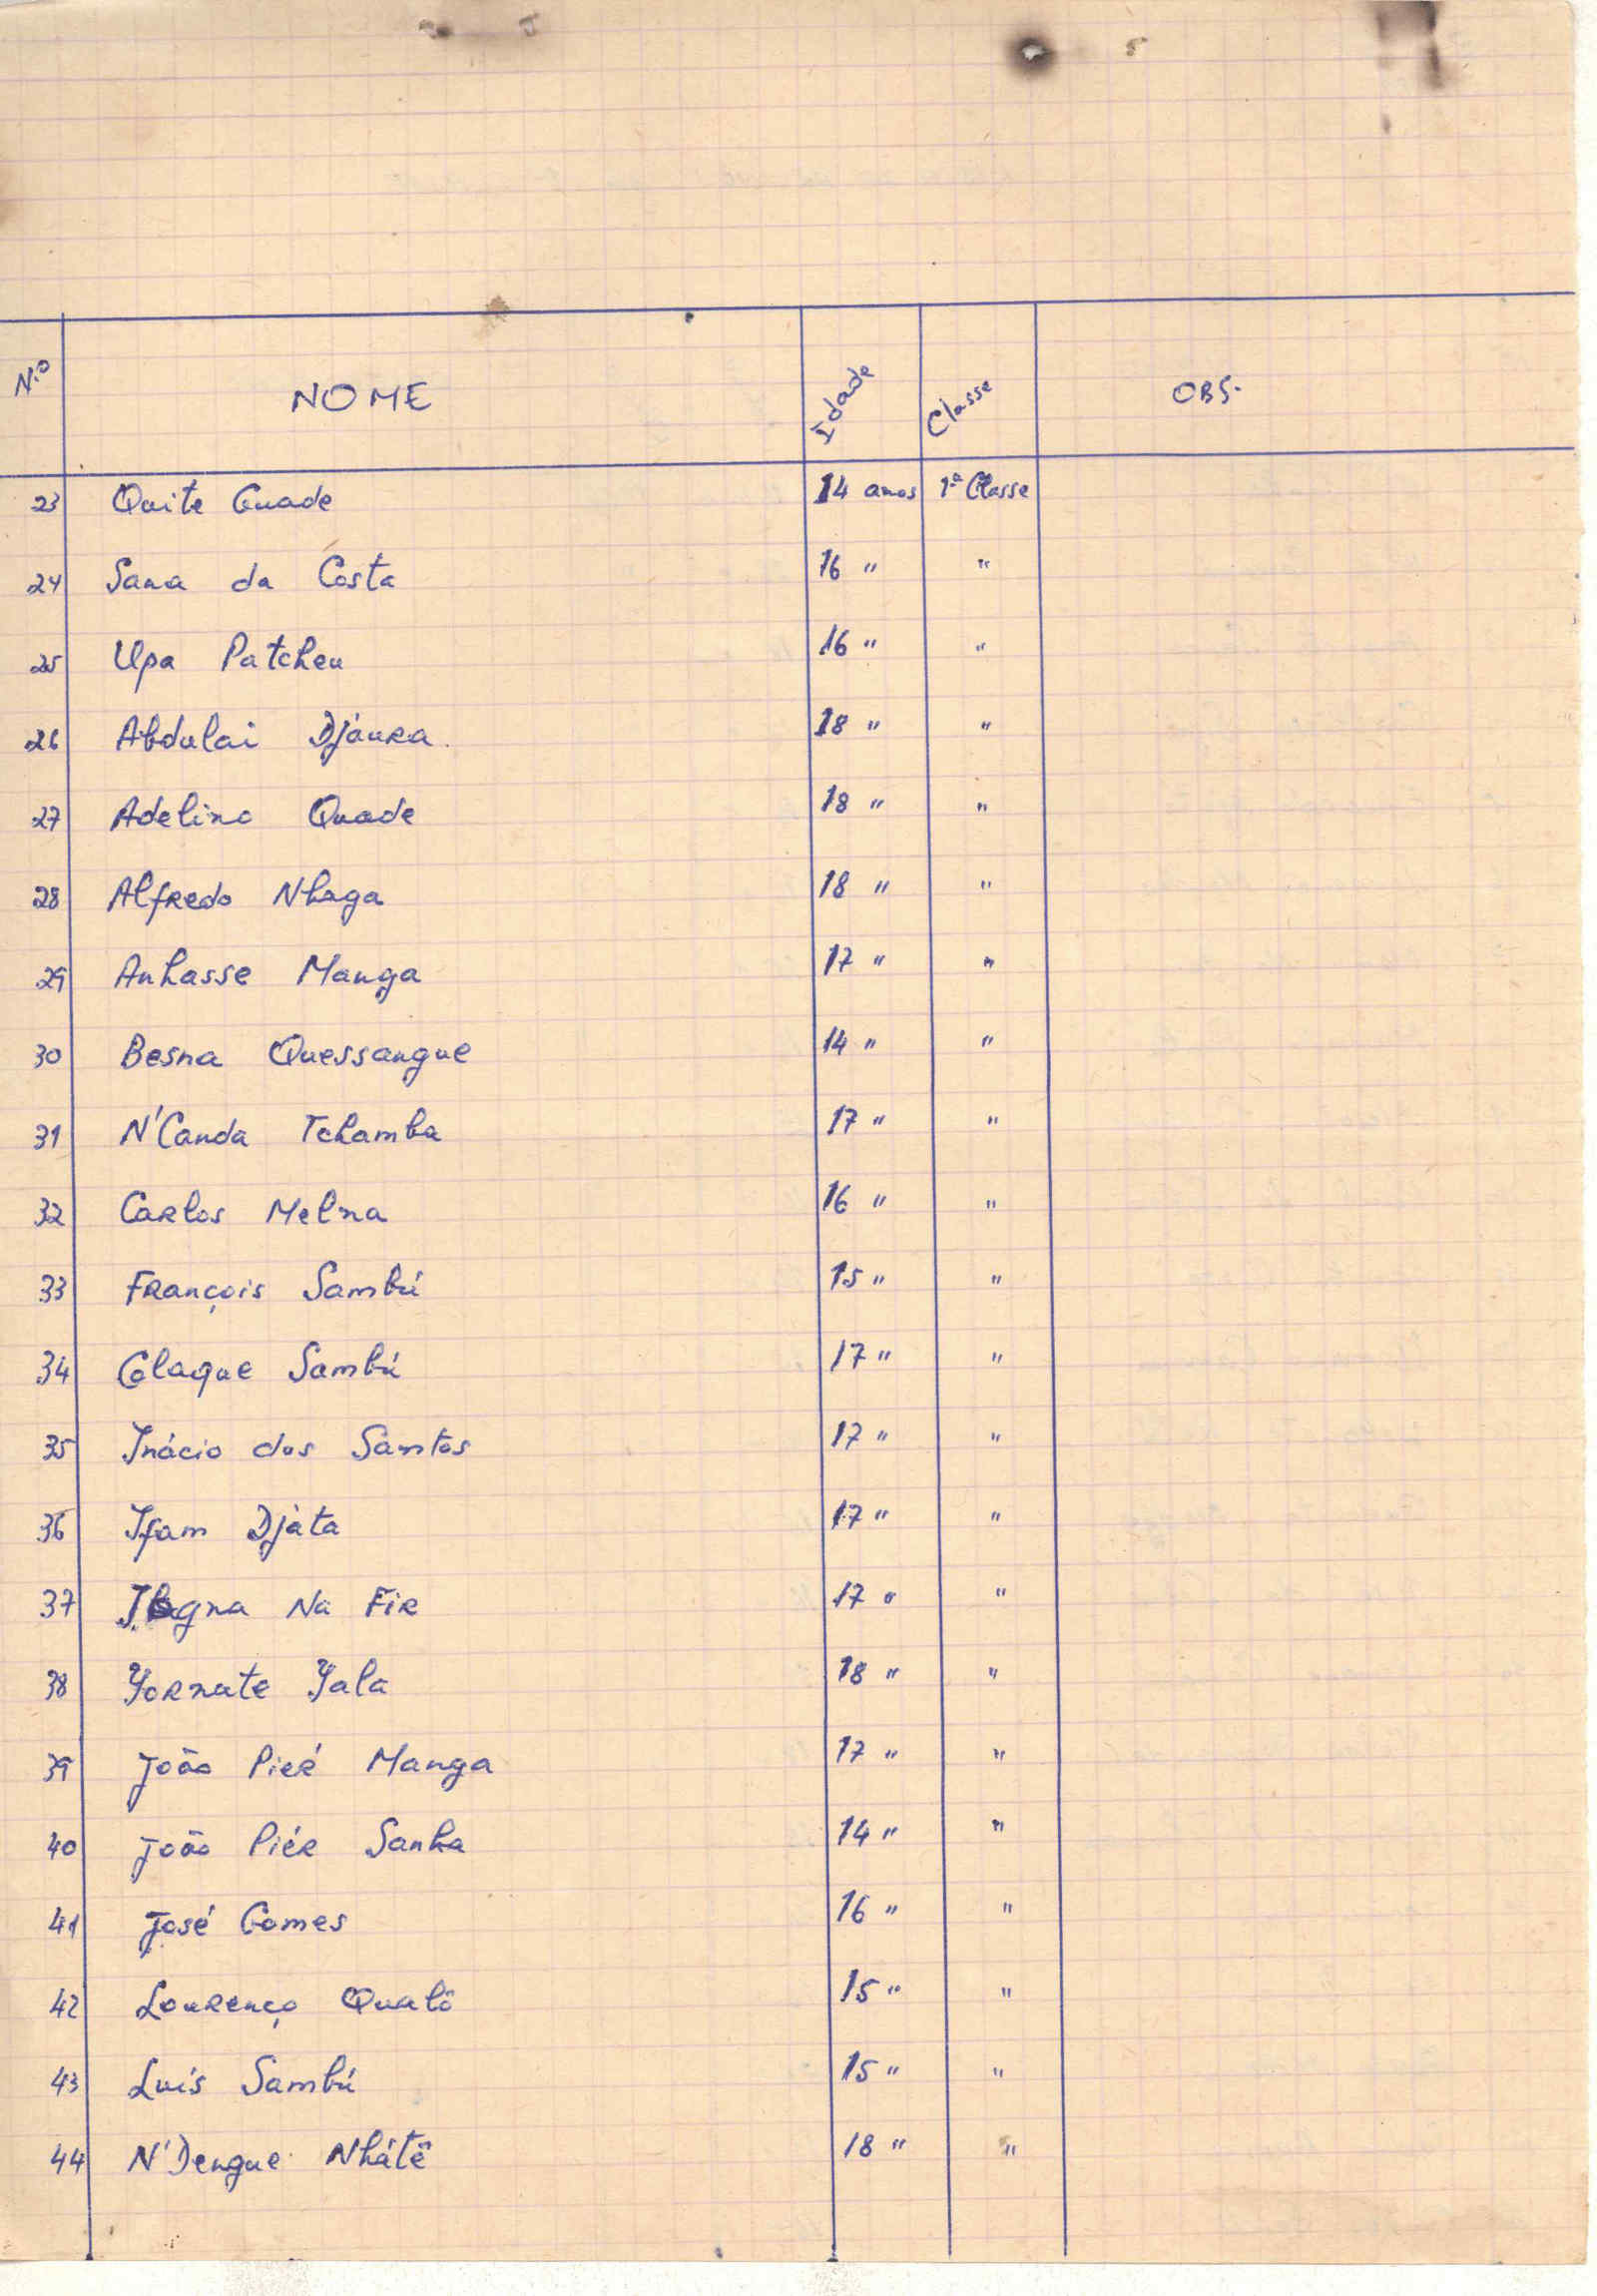 N.º NOME Idade Classe OBS.
23 Quite Guade 14 anos 1ª Classe
24 Sana da Costa 16 " "
25 Upa Patcheu 16 " "
26 Abdulai Djáura 18 " "
27 Adelino Quade 18 " "
28 Alfredo Nhaga 18 " "
29 Anhasse Manga 17 " "
30 Besna Quessangue 14 " "
31 N'Canda Tchamba 17 " "
32 Carlos Melna 16 " "
33 François Sambú 15 " "
34 Colaque Sambú 17 " "
35 Inácio dos Santos 17 " "
36 Ifam Djáta 17 " "
37 Na Fir 17 " "
38 Yornate Yala 18 " "
39 João Pieŕ Manga 17 " "
40 João Piér Sanha 14 " "
41 José Gomes 16 " "
42 Lourenço Qualô 15 " "
43 Luís Sambú 15 " "
44 N'Dengue Nhátê 18 " "